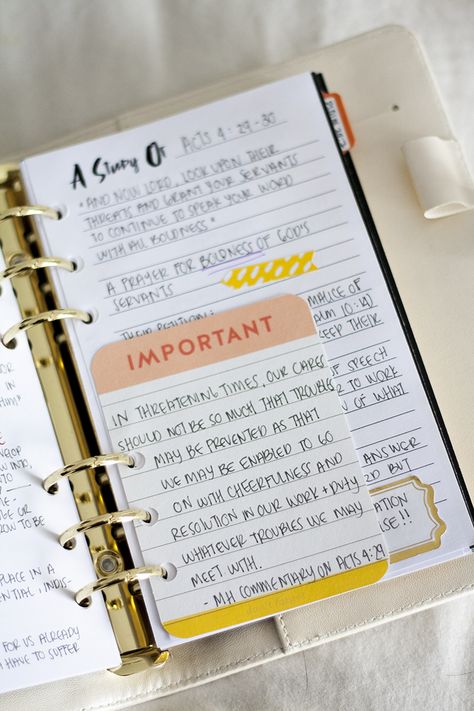 A Study Of ACTS 4:29-30
"AND NOW LORD, LOOK UPON THEIR
THREATS AND GRANT YOUR SERVANTS
TO CONTINUE TO SPEAK YOUR WORD
WITH ALL BOLDNESS"
A PRAYER FOR BOLDNESS OF GOD'S
SERVANTS
THEIR PETITION:
MALICE OF
10:14)
KEEP THEIR
OF SPEECH
OR TO WORK
OF WHAT
ANSWER
BUT
ATION
USE!!
IMPORTANT
IN THREATENING TIMES, OUR CARES
SHOULD NOT BE SO MUCH THAT TROUBLES
MAY BE PREVENTED AS THAT
WE MAY BE ENABLED TO GO
ON WITH CHEERFULNESS AND
RESOLUTION IN OUR WORK + DUTY
WHATEVER TROUBLES WE MAY
MEET WITH.
- MH COMMENTARY ON ACTS 4:29
IN
PLACE IN A
ENTIAL, INDIS-
FOR US ALREADY
HAVE TO SUFFER